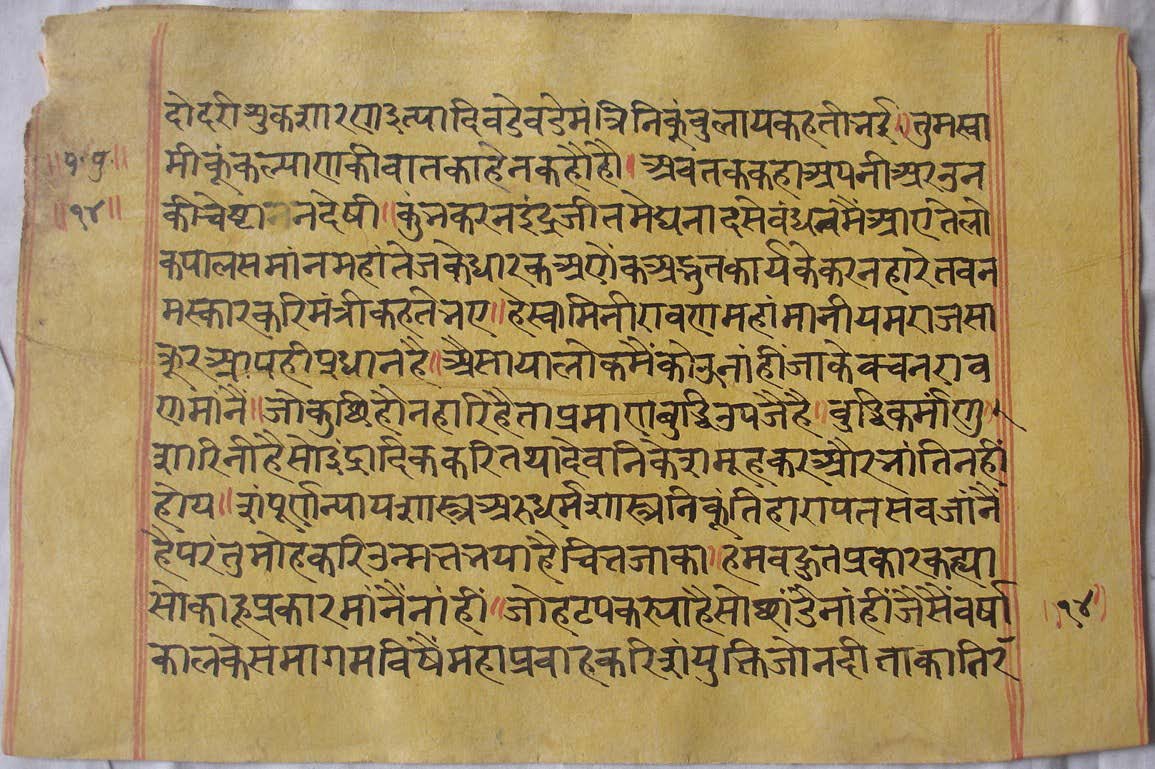 दोदरीशुकशारणइत्यादिवडेवडेमंत्रिनिकुंवुलायकहतीभई॥तुमस्वा
॥प॰पु॥ मीकूंकल्याणकीवातकाहेनकहौहौ।अवतककहाअपनीअरउन
॥१४॥ कीचेष्टाननदेषी॥कुंभकरनइंद्रजीतमेघनादसेवंधनमैंआएतेलो
कपालसमांनमहांतेजकेधारकअणेकअद्भुतकार्यकेकरनहारेतवन
मस्कारकरिमंत्रीकहतेभए॥हेस्वामिनीरावणमहांमानीयमराजसा
क्रूरआपहीप्रधानहै॥अैसायालोकमैंकोउनांहींजाकेवचनराव
णमांनैं॥जोकुछिहौनहारिहैताप्रमाणबुद्धिउपजैहै॥वुद्धिकर्माणु
शारिनीहैसोइंद्रादिककरितथादेवनिकेशमूहकरऔरभांतिनहीं
होय॥शंपूर्णन्यायशास्त्रअरुधर्मशास्त्रनिकूंतिहारापतसवजांनैं
हैपरंतुमोहकरिउन्मत्तभयाहैचितजाका॥हमवहुतप्रकारकह्या
सोकाहूप्रकारमांनैंनांहीं॥जोहटपकड्याहैसोछांडैनांहींजैसैंवर्षा ॥१४॥
कालकेसमागमविषैंमहाप्रवाहकरिशंयुक्तिजोनदीताकातिर